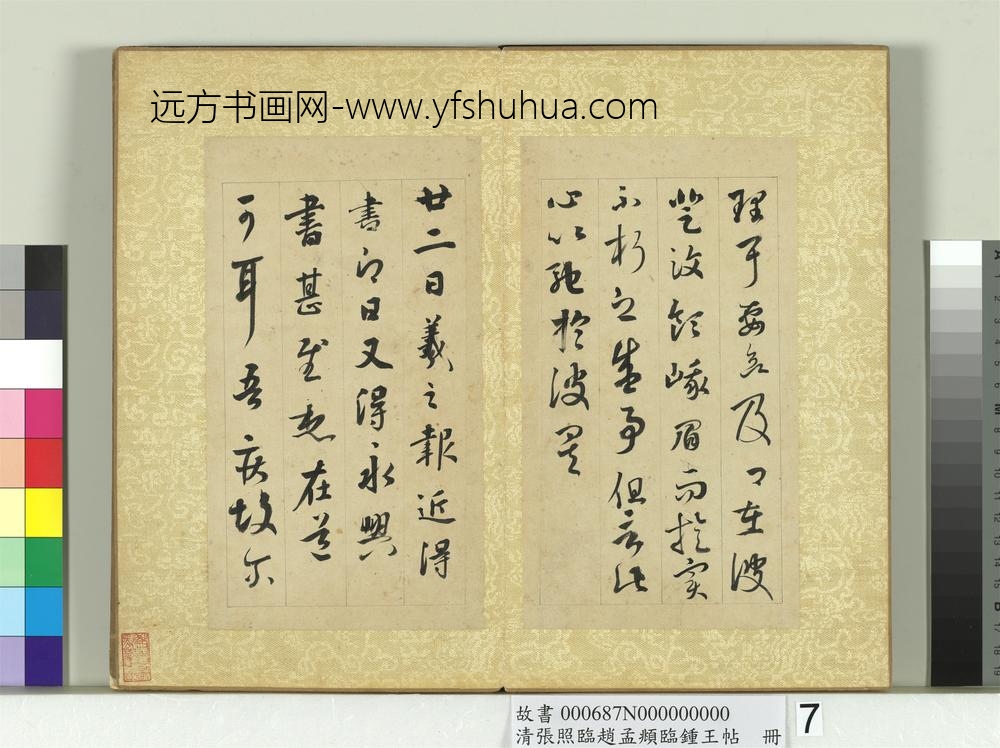 远方书画网-www.yfshuhua.com
理耳要欲及卿在彼
登汶領峨眉而旋實
不朽之盛事但言此
心以馳於彼矣
廿二日羲之報近得
書即日又得永興
書甚慰想在道
可耳吾疾故爾
故書 000687N000000000
清張照臨趙孟頫臨鍾王帖 冊
7